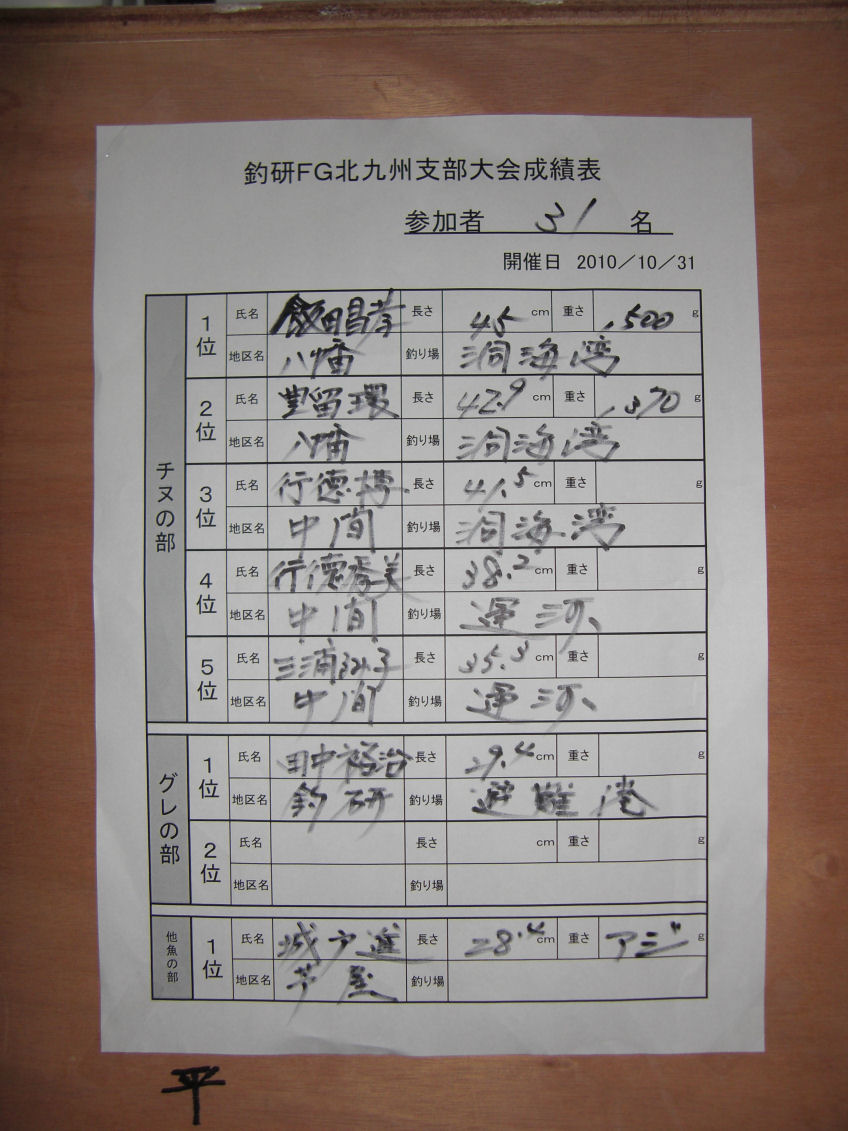 釣研FG北九州支部大会成績表
参加者 31 名
開催日 2010/10/31
チヌの部
1位 氏名 飯田昌孝 長さ 45 cm 重さ 1,500 g
地区名 八幡 釣り場 洞海湾
2位 氏名 豊留環 長さ 42.9 cm 重さ 1,370 g
地区名 八幡 釣り場 洞海湾
3位 氏名 行徳 長さ 41.5 cm 重さ g
地区名 中間 釣り場 洞海湾
4位 氏名 行徳秀美 長さ 38.2 cm 重さ g
地区名 中間 釣り場 運河
5位 氏名 三浦 子 長さ 35.3 cm 重さ g
地区名 中間 釣り場 運河
グレの部
1位 氏名 田中裕治 長さ 29.4 cm 重さ g
地区名 釣研 釣り場 避難港
2位 氏名 長さ cm 重さ g
地区名 釣り場
他魚の部
1位 氏名 城戸進 長さ 28.4 cm 重さ アジ g
地区名 芦屋 釣り場
平